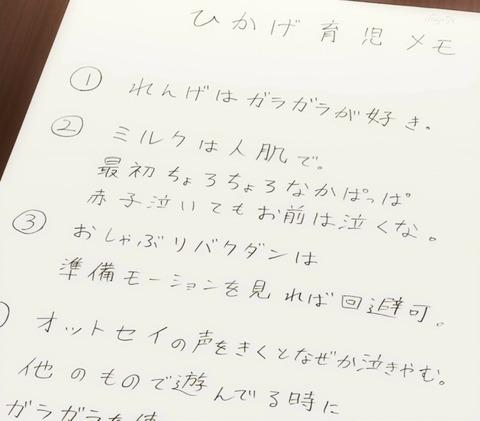 ひかげ育児メモ
① れんげはガラガラが好き。
② ミルクは人肌で。
最初ちょろちょろなかぱっぱ。
赤子泣いてもお前は泣くな。
③ おしゃぶりバクダンは
準備モーションを見れば回避可。
オットセイの声をきくとなぜか泣きやむ。
他のもので遊んでる時に
ガラガラを使